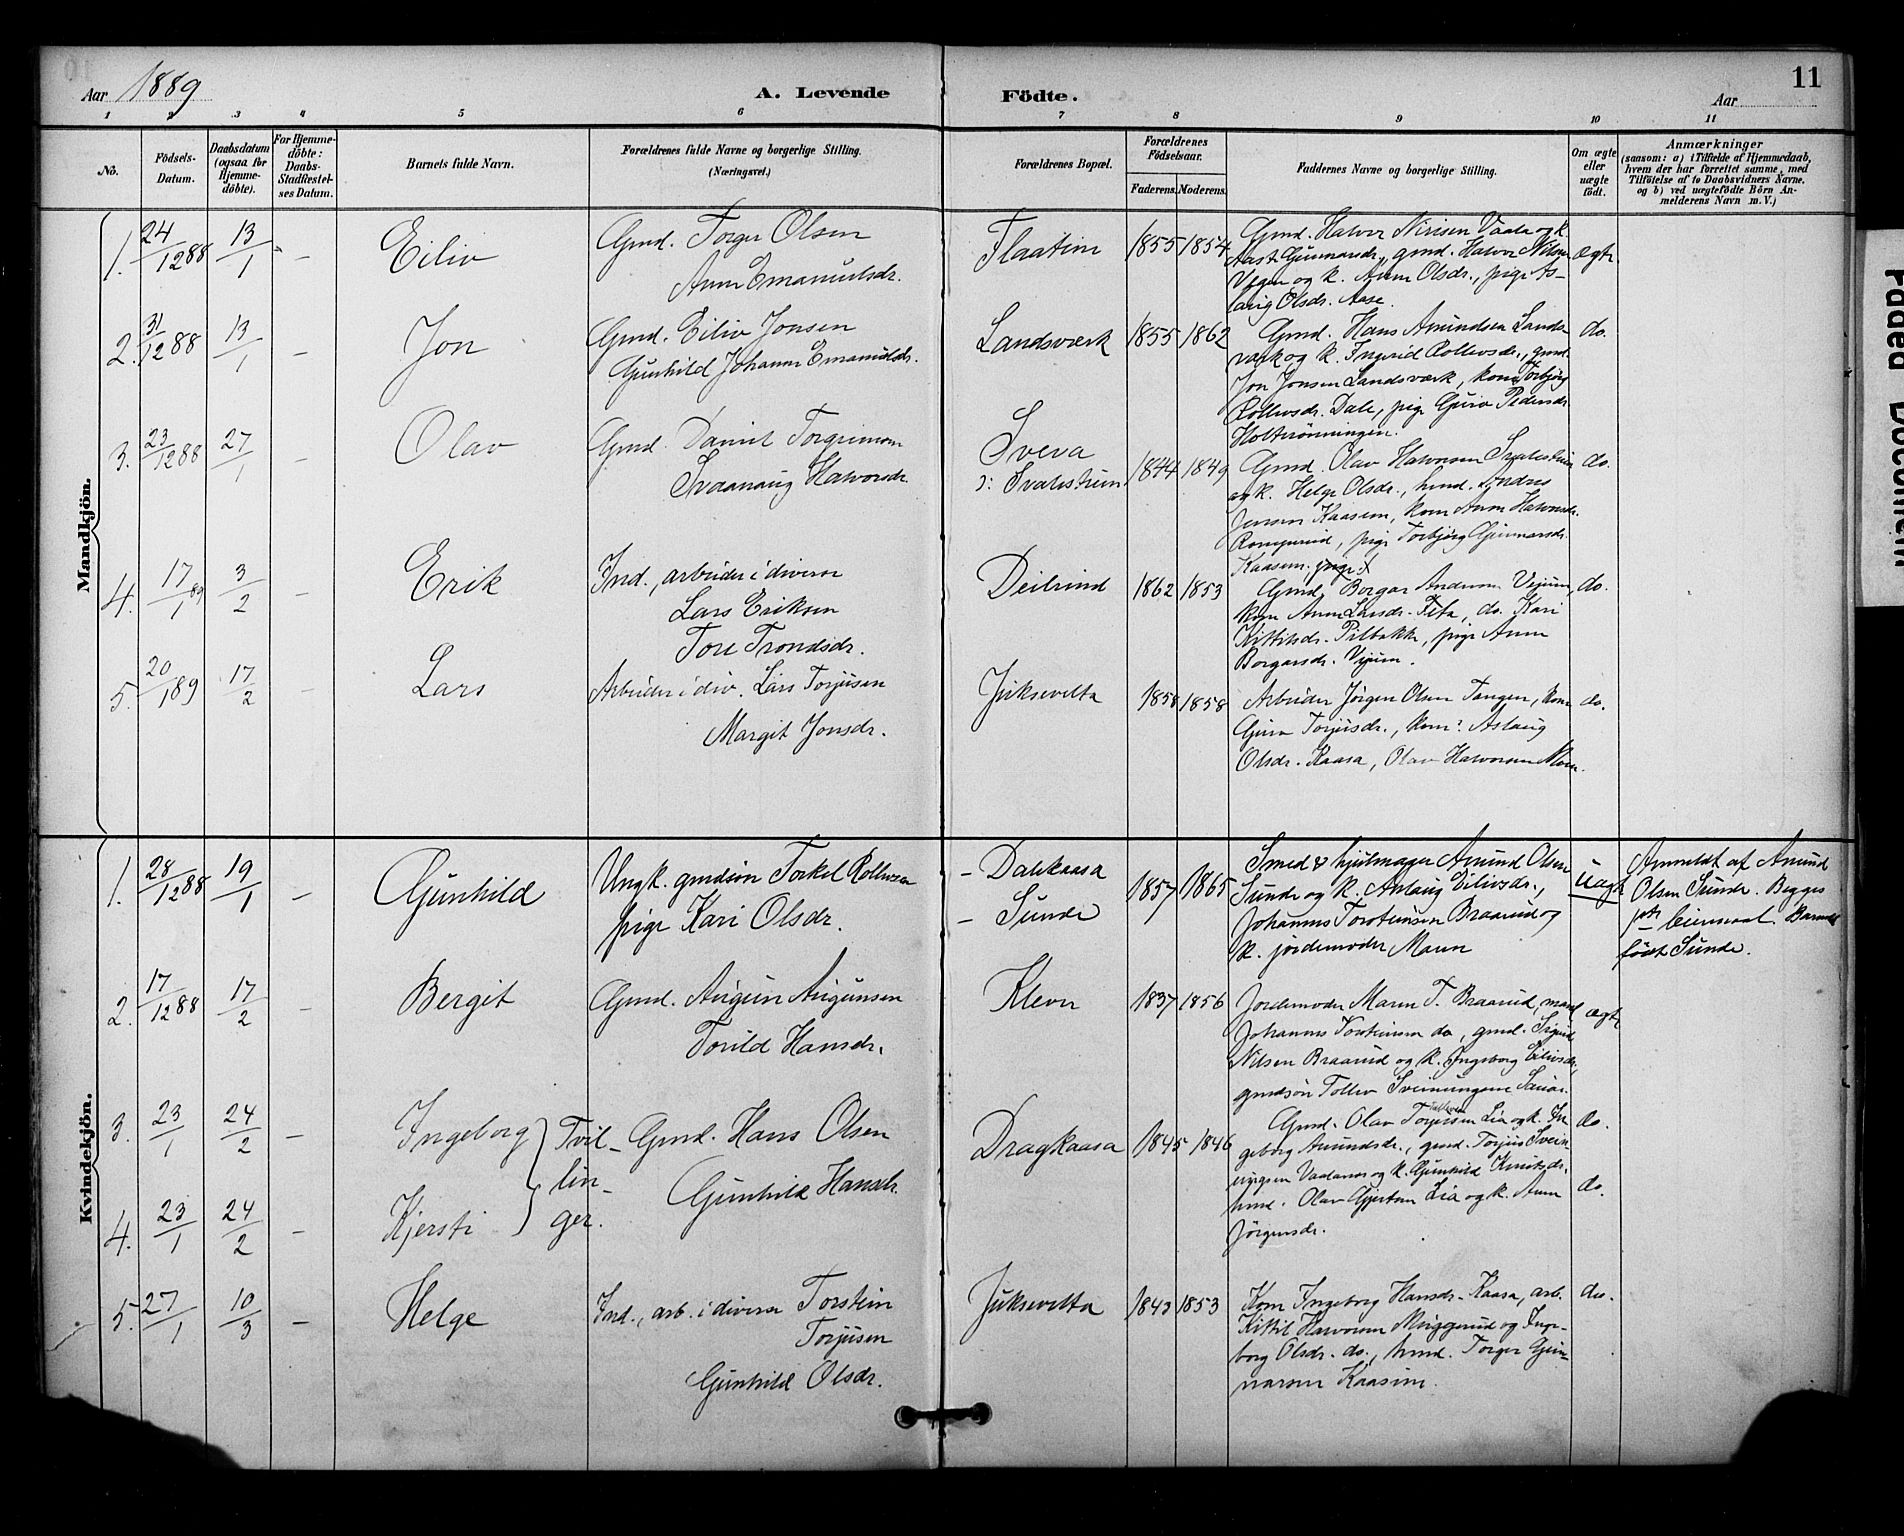 Aar 1889
A. Levende
Födte.
Aar
11
1 2 3 4 5 6 7 8 9 10 11
No.
Födsels-
Datum.
Daabsdatum
(ogsaa for
Hjemme-
döbte).
For Hjemme-
döbte:
Daabs-
Stadfæstel-
ses Datum.
Barnets fulde Navn.
Forældrenes fulde Navne og borgerlige Stilling.
(Næringsvei.)
Forældrenes Bopæl.
Forældrenes
Födselsaar.
Faderens.
Moderens.
Faddernes Navne og borgerlige Stilling.
Om ægte
eller
uægte
födt.
Anmærkninger
(saasom: a) i Tilfælde af Hjemmedaab,
hvem der har forrettet samme, med
Tilföielse af to Daabsvidners Navne.
og b) ved uægtefödte Börn An-
melderens Navn m. V.)
Mandkjön.
1. 24/12 88 13/1 - Eiliv
Gmd. Torger Olsen
Anne Emanuelsdr.
Flaatin 1855 1854
Gmd. Halvor Nirisen Vaala og k.
Aast Gunnarsdr., gmd. Halvor Nilsen
og k. Anne Olsdr., pige As-
laug Olsdr. Aase.
ægte
2. 31/12 88 13/1 - Jon
Gmd. Eiliv Jonsen
Gunhild Johanne Emanuelsdr.
Landsværk 1855 1862
Gmd. Hans Amundsen Lands-
værk og k. Ingerid Rollevsdr., gmd.
Jon Jonsen Landsværk, kone Torbjörg
Rollevsdr. Dale, pige Guro Pedersdr.
Holtrönningen.
do.
3. 23/12 88 27/1 - Olav
Gmd. Daniel Torgrimsen
Svaanaug Halvorsdr.
Sveva
ɔ: Svalestuen 1844 1849
Gmd. Olav Halvorsen Svalestuen
og k. Helge Olsdr., hmd. Andres
Jensen Kaasen, kone Anne Halvorsdr.
pige Torbjörg Gunnarsdr.
Kaasen. pige
do.
4. 17/1 89 3/2 - Erik
Ind., arbeider i diverse
Lars Eriksen
Tore Trondsdr.
Deilrind 1862 1853
Gmd. Borgar Andersen Vejum,
kone Anne Larsdr. do. Kari
Kittilsdr. Pilbakke, pige Anne
Borgarsdr. Vejum.
do.
5. 20/1 89 17/2 - Lars
Arbeider i div. Lars Torjusen
Margit Jonsdr.
Juksevelta 1858 1858
Arbeider Jörgen Olsen Tangen, kone
Guro Torjusdr., kone: Aslaug
Olsdr. Kaasa, Olav Halvorsen Moen.
do.
Kvindekjön.
1. 28/12 88 19/1 - Gunhild
Ungk. gmdsön Torkel Rollevsen
pige Kari Olsdr.
- Dalekaasa
- Sunde
1857 1865
Smed & hjulmager Amund Olsen
Sunde og k. Aslaug Eilivsdr.,
Johannes Torsteinsen Braarud og
k. jordemoder Maren
Uægte
Anmeldt af Amund
Olsen Sunde. Begges
1ste leiermaal. Barnet
födt Sunde.
2. 17/12 88 17/2 - Bergit
Gmd. Augun Augunsen
Torild Hansdr.
Kleven 1837 1856
Jordemoder Maren T. Braarud, mand
Johannes Torsteinsen do, gmd. Sigurd
Nilsen Braarud og k. Ingeborg Eilivsdr.,
gmdsön Tollev Sveinungsen
ægte
3. 23/1 24/2 - Ingeborg
4. 23/1 24/2 - Kjersti
Tvil-
lin-
ger.
Gmd. Hans Olsen
Gunhild Hansdr.
Dragkaasa 1845 1846
Gmd. Olav Tollevsen Lia og k. In-
geborg Amundsdr., gmd. Torjus Svein-
ungsen Vaalanes og k. Gunhild Knutsdr.
hmd. Olav Gjertsen Lia og k. Anne
Jörgensdr.
do.
do.
5. 27/1 10/3 - Helge
Ind., arb. i diverse Torstein
Torjusen
Gunhild Olsdr.
Juksevelta 1843 1853
Kone Ingeborg Hansdr. Kaasa, arb.
Kittil Halvorsen Meiggerud og Inge-
borg Olsdr. do., hmd. Torger Gun-
narsen Kaasene.
do.
Faded Document